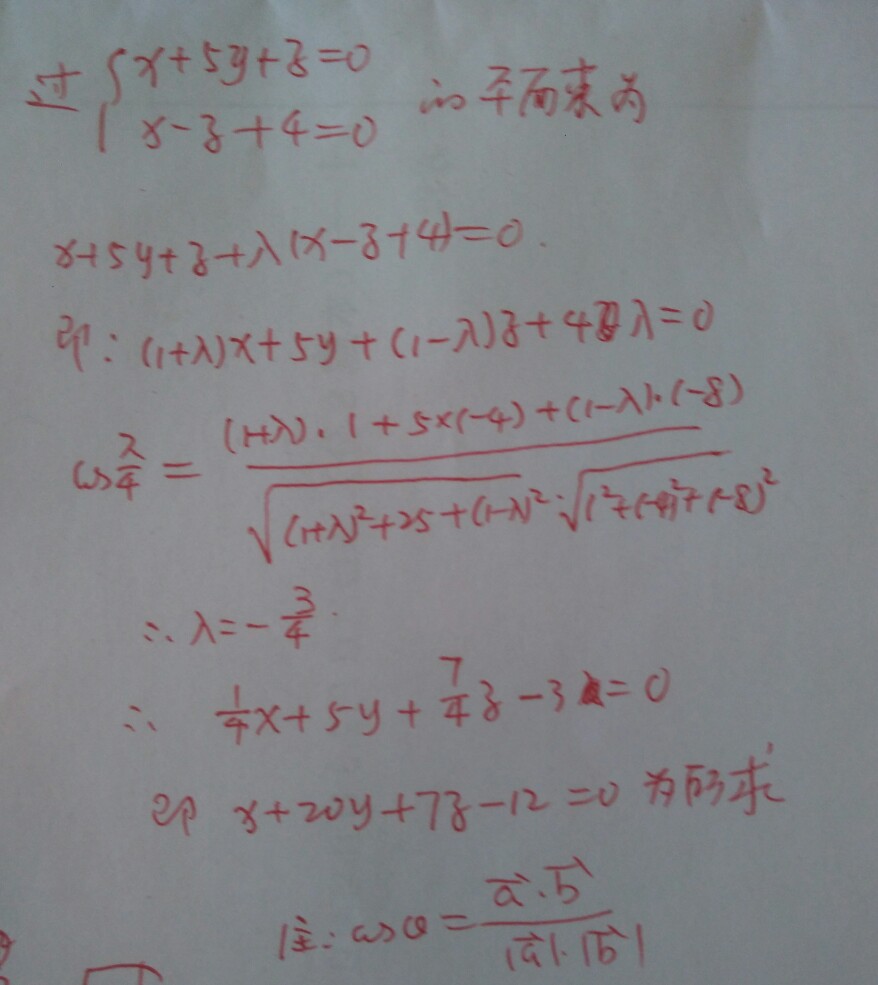 过 { x+5y+z=0
x-z+4=0 的平面束为
x+5y+z+λ(x-z+4)=0.
即: (1+λ)x+5y+(1-λ)z+4λ=0
cos π/4 = ((1+λ)·1+5×(-4)+(1-λ)·(-8))/(√((1+λ)²+25+(1-λ)²)·√(1²+(-4)²+(-8)²))
∴ λ=-3/4.
∴ 1/4x+5y+7/4z-3=0
即 x+20y+7z-12=0 为所求
注: cosθ=(a⃗·b⃗)/(|a⃗|·|b⃗|)